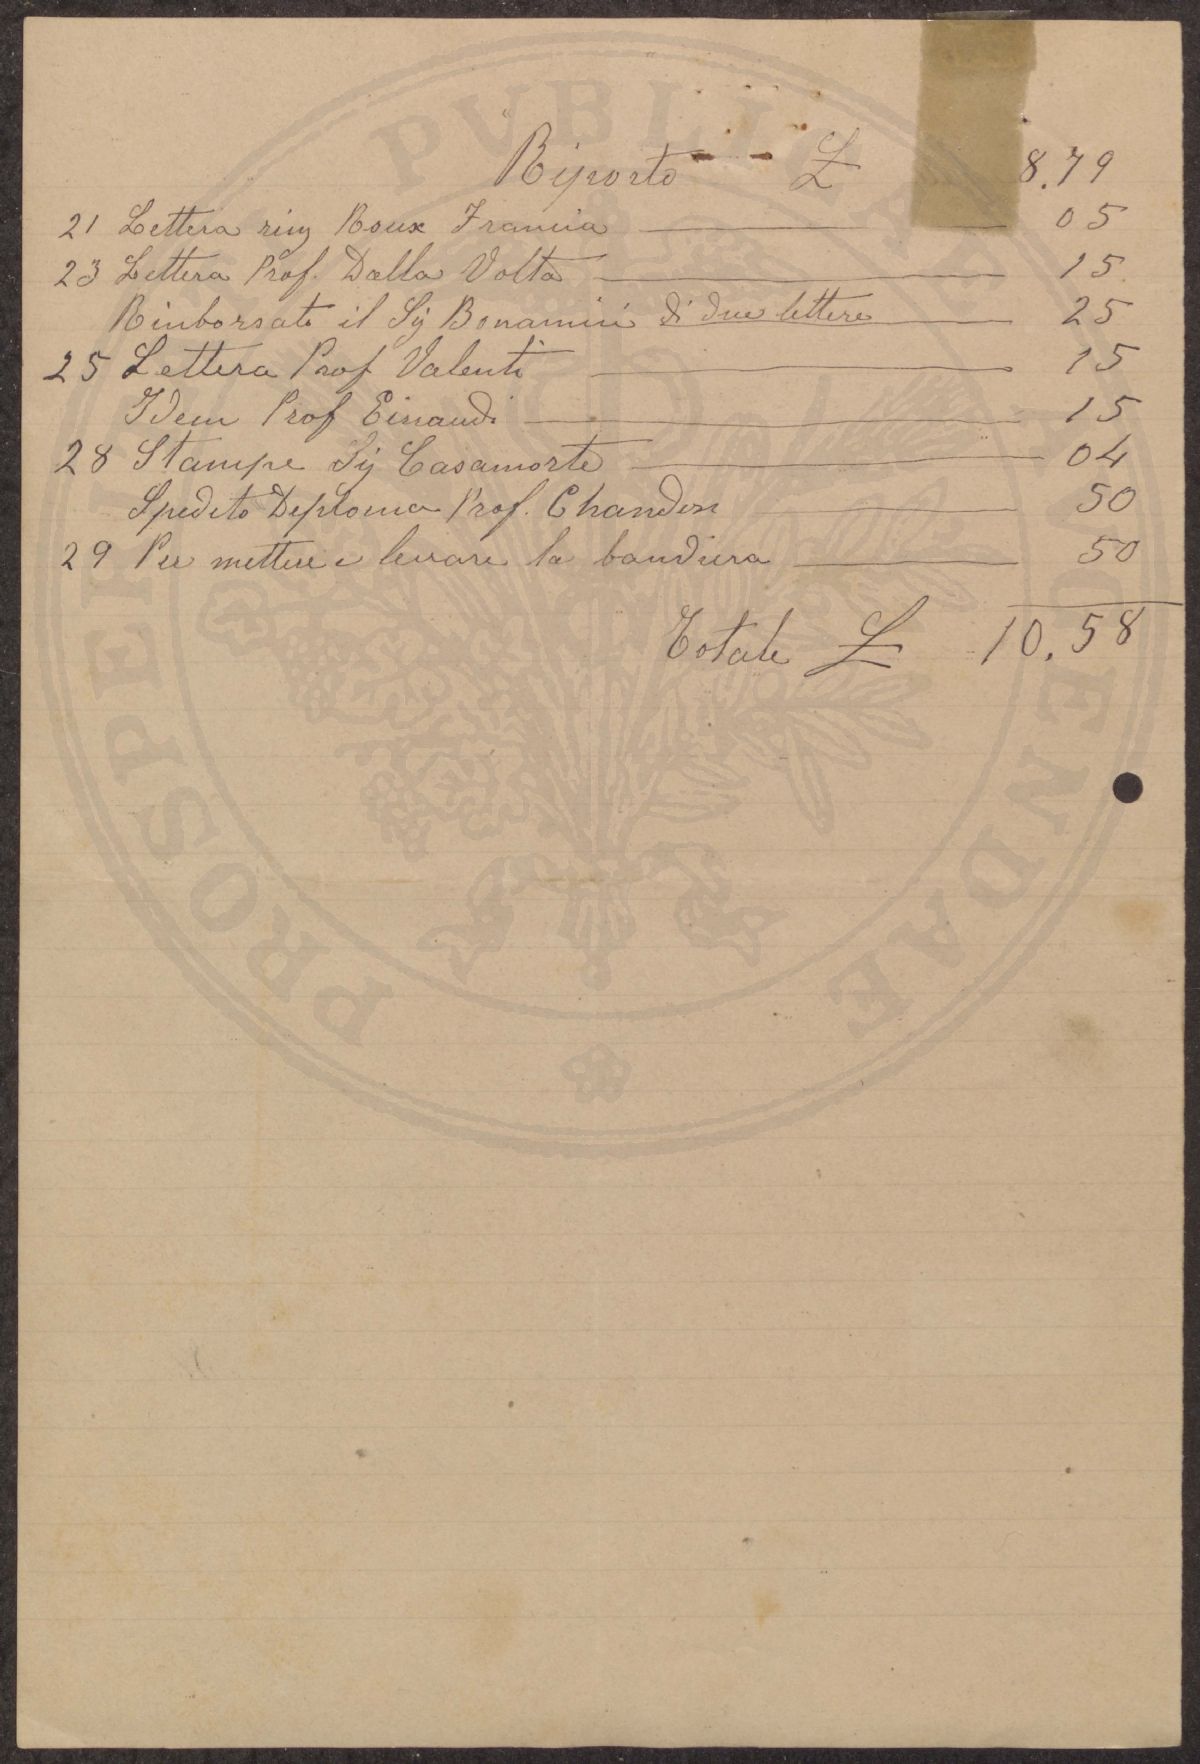 Riporto £ 8.79
21 Lettera ring Roux Francia 05
23 Lettera Prof. Dalla Volta 15
Rimborsato il Sig Bonamini di due lettere 25
25 Lettera Prof Valenti 15
Idem Prof Einaudi 15
28 Stampe Sig Casamorte 04
Spedito Diploma Prof. Chandon 50
29 Per mettere e levare la bandiera 50
Totale £ 10.58
PROSPERITATI PUBLICAE AUGENDAE